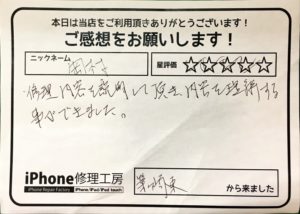 本日は当店をご利用頂きありがとうございます！
ご感想をお願いします！
ニックネーム
星評価 ☆☆☆☆☆
修理内容を説明して頂き、内容を理解する
事ができました。
iPhone修理工房
iPhone Repair Factory
iPhone/iPad/iPod touch
から来ました